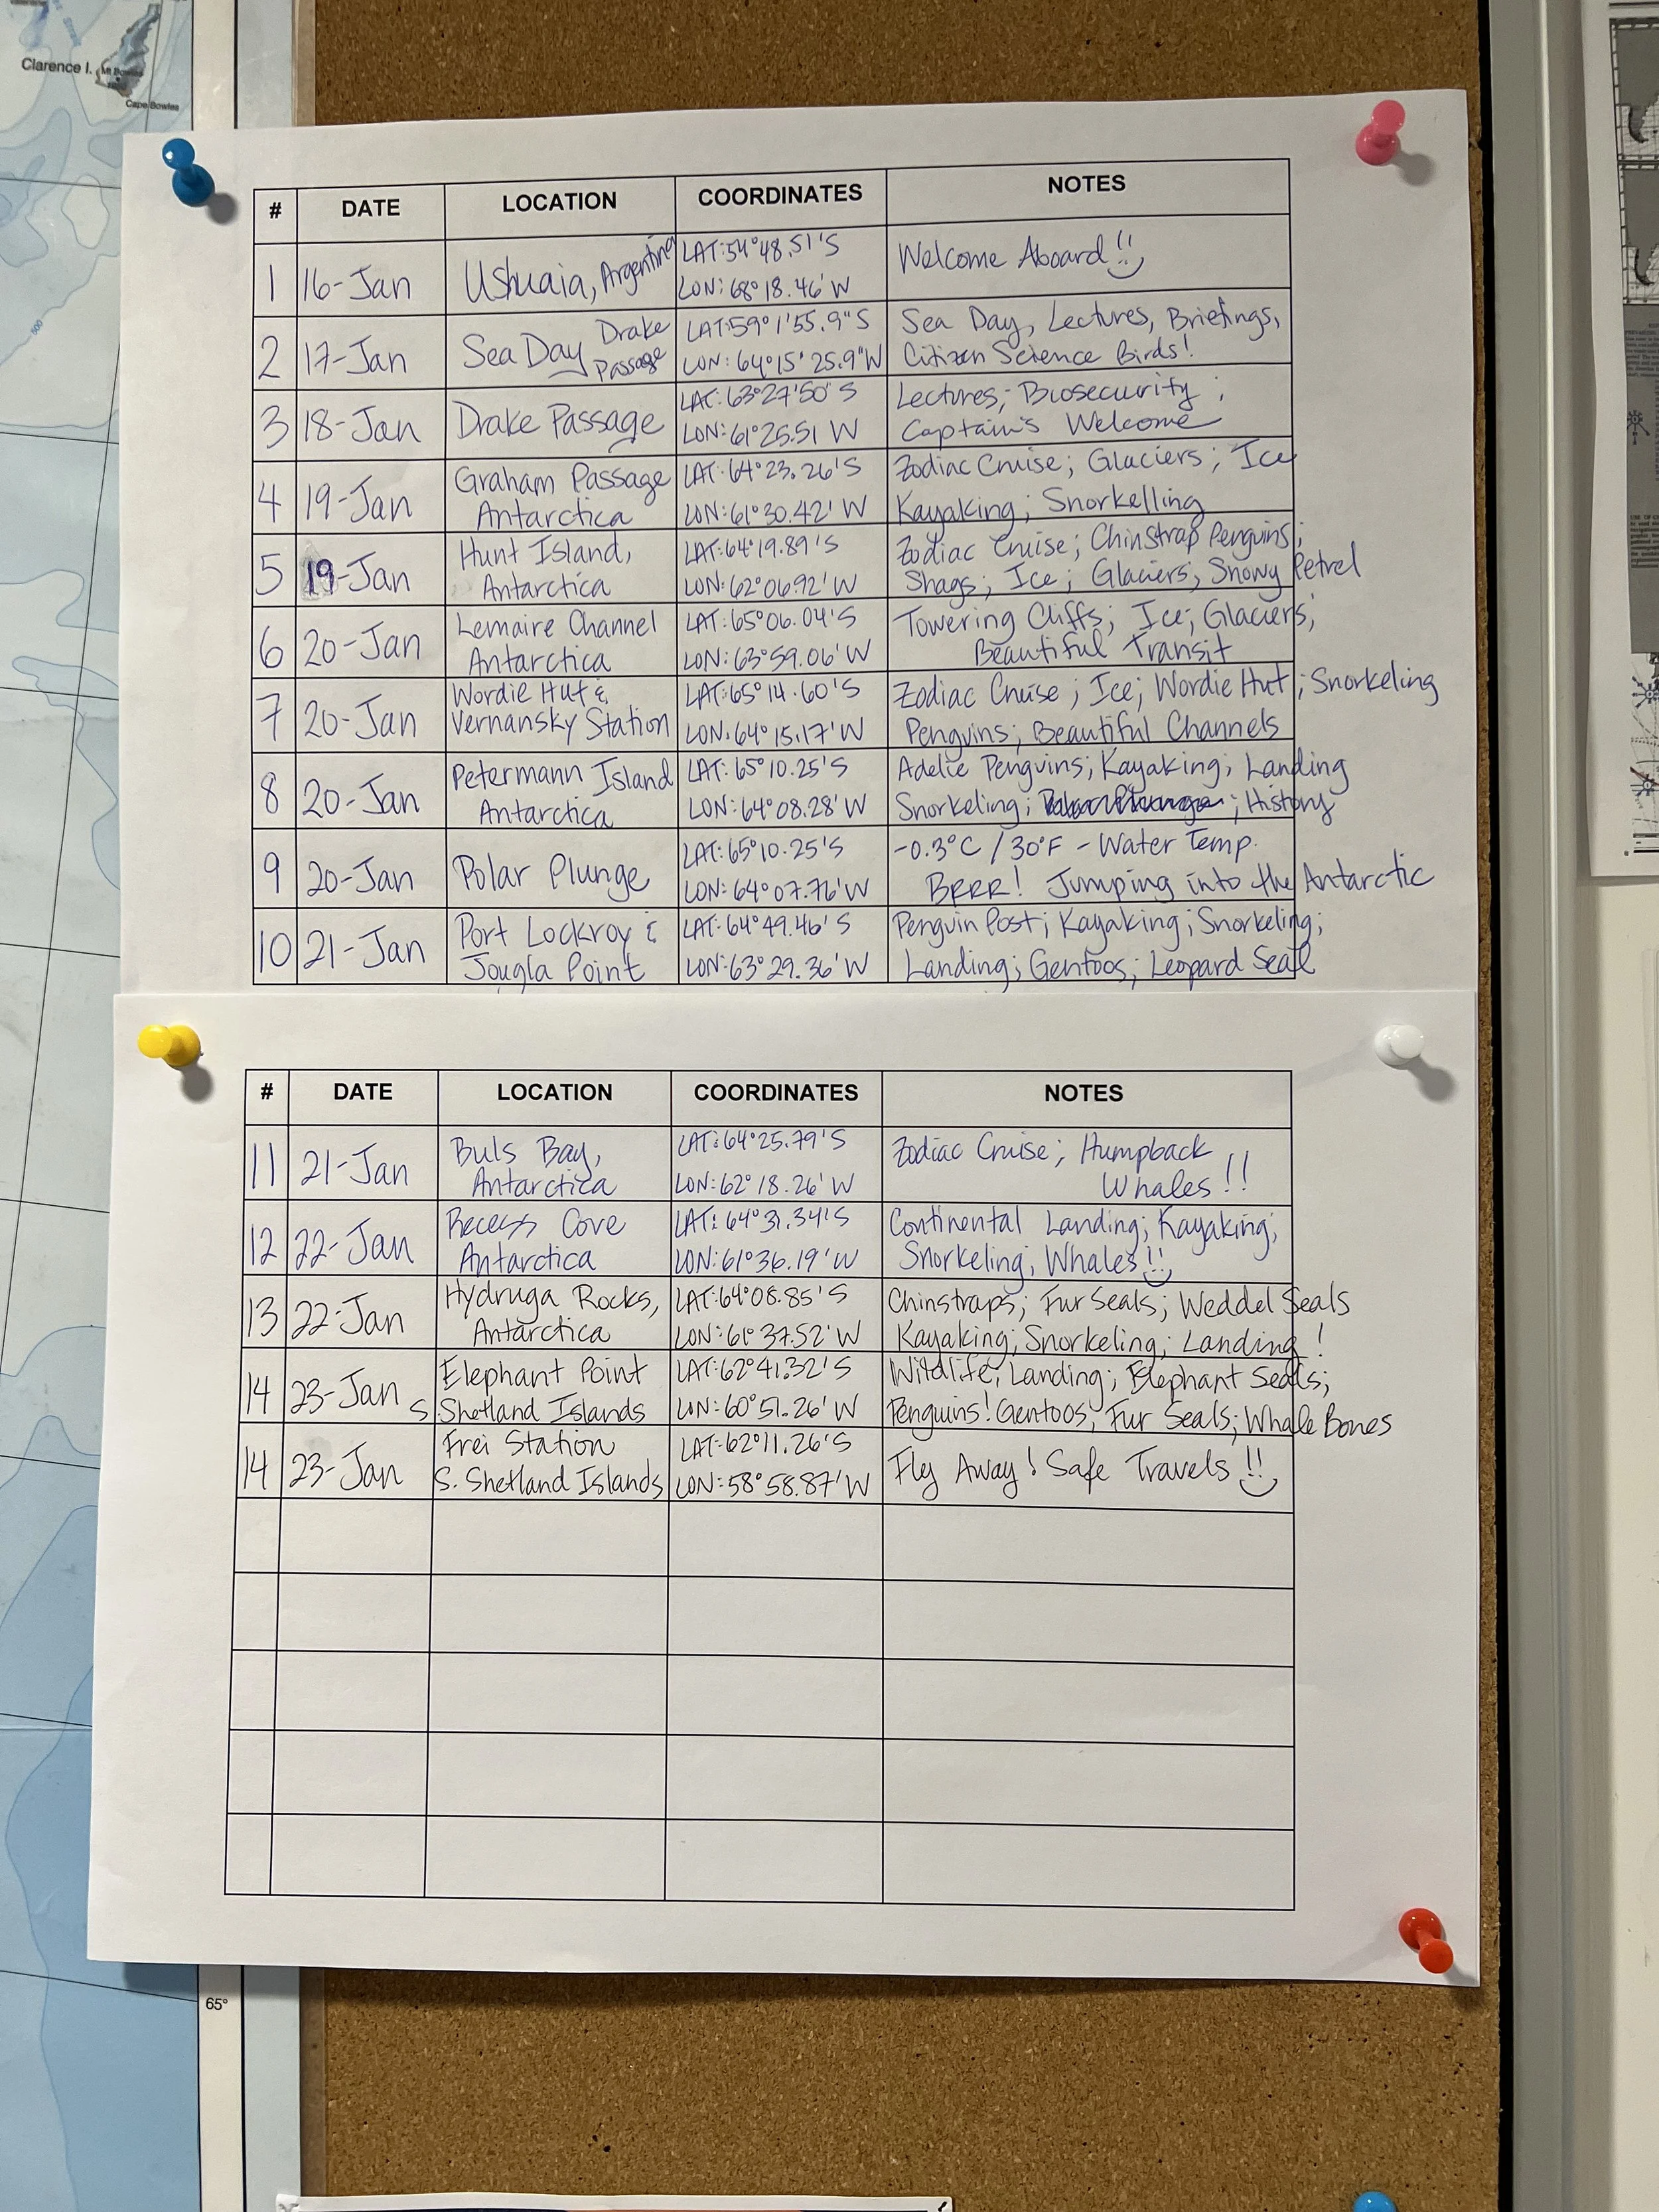 Clarence I.
Mt Bowles
Cape Bowles
500
# DATE LOCATION COORDINATES NOTES
1 16-Jan Ushuaia, Argentina LAT:54°48.51'S Welcome Aboard!!
LON:68°18.46'W
2 17-Jan Sea Day Drake LAT:59°1'55.9"S Sea Day, Lectures, Briefings,
Passage LON: 64°15'25.9"W Citizen Science Birds!
3 18-Jan Drake Passage LAT:63°27'50"S Lectures; Biosecurity;
LON:61°25.51 W Captain's Welcome
4 19-Jan Graham Passage LAT:64°23.26'S Zodiac Cruise; Glaciers; Ice
Antarctica LON:61°30.42'W Kayaking; Snorkelling
5 19-Jan Hunt Island, LAT:64°19.89'S Zodiac Cruise; Chinstrap Penguins;
Antarctica LON:62°06.92'W Shags; Ice; Glaciers; Snowy Petrel
6 20-Jan Lemaire Channel LAT:65°06.04'S Towering Cliffs; Ice; Glaciers;
Antarctica LON:63°59.06'W Beautiful Transit
7 20-Jan Wordie Hut & LAT:65°14.60'S Zodiac Cruise; Ice; Wordie Hut; Snorkeling
Vernansky Station LON:64°15.17'W Penguins; Beautiful Channels
8 20-Jan Petermann Island LAT:65°10.25'S Adelie Penguins; Kayaking; Landing
Antarctica LON:64°08.28'W Snorkeling; ; History
9 20-Jan Polar Plunge LAT:65°10.25'S -0.3°C / 30°F - Water Temp.
LON:64°07.76'W BRRR! Jumping into the Antarctic
10 21-Jan Port Lockroy & LAT:64°49.46'S Penguin Post; Kayaking; Snorkeling;
Jougla Point LON:63°29.36'W Landing; Gentoos; Leopard Seal
# DATE LOCATION COORDINATES NOTES
11 21-Jan Buls Bay, LAT:64°25.79'S Zodiac Cruise; Humpback
Antarctica LON:62°18.26'W Whales!!
12 22-Jan Recess Cove LAT:64°31.34'S Continental Landing; Kayaking;
Antarctica LON:61°36.19'W Snorkeling; Whales!!
13 22-Jan Hydruga Rocks, LAT:64°08.85'S Chinstraps; Fur Seals; Weddel Seals
Antarctica LON:61°37.52'W Kayaking; Snorkeling; Landing!
14 23-Jan Elephant Point LAT:62°41.32'S Wildlife; Landing; Elephant Seals;
S. Shetland Islands LON:60°51.26'W Penguins! Gentoos; Fur Seals; Whale Bones
14 23-Jan Frei Station LAT:62°11.26'S Fly Away! Safe Travels!!
S. Shetland Islands LON:58°58.87'W
65°